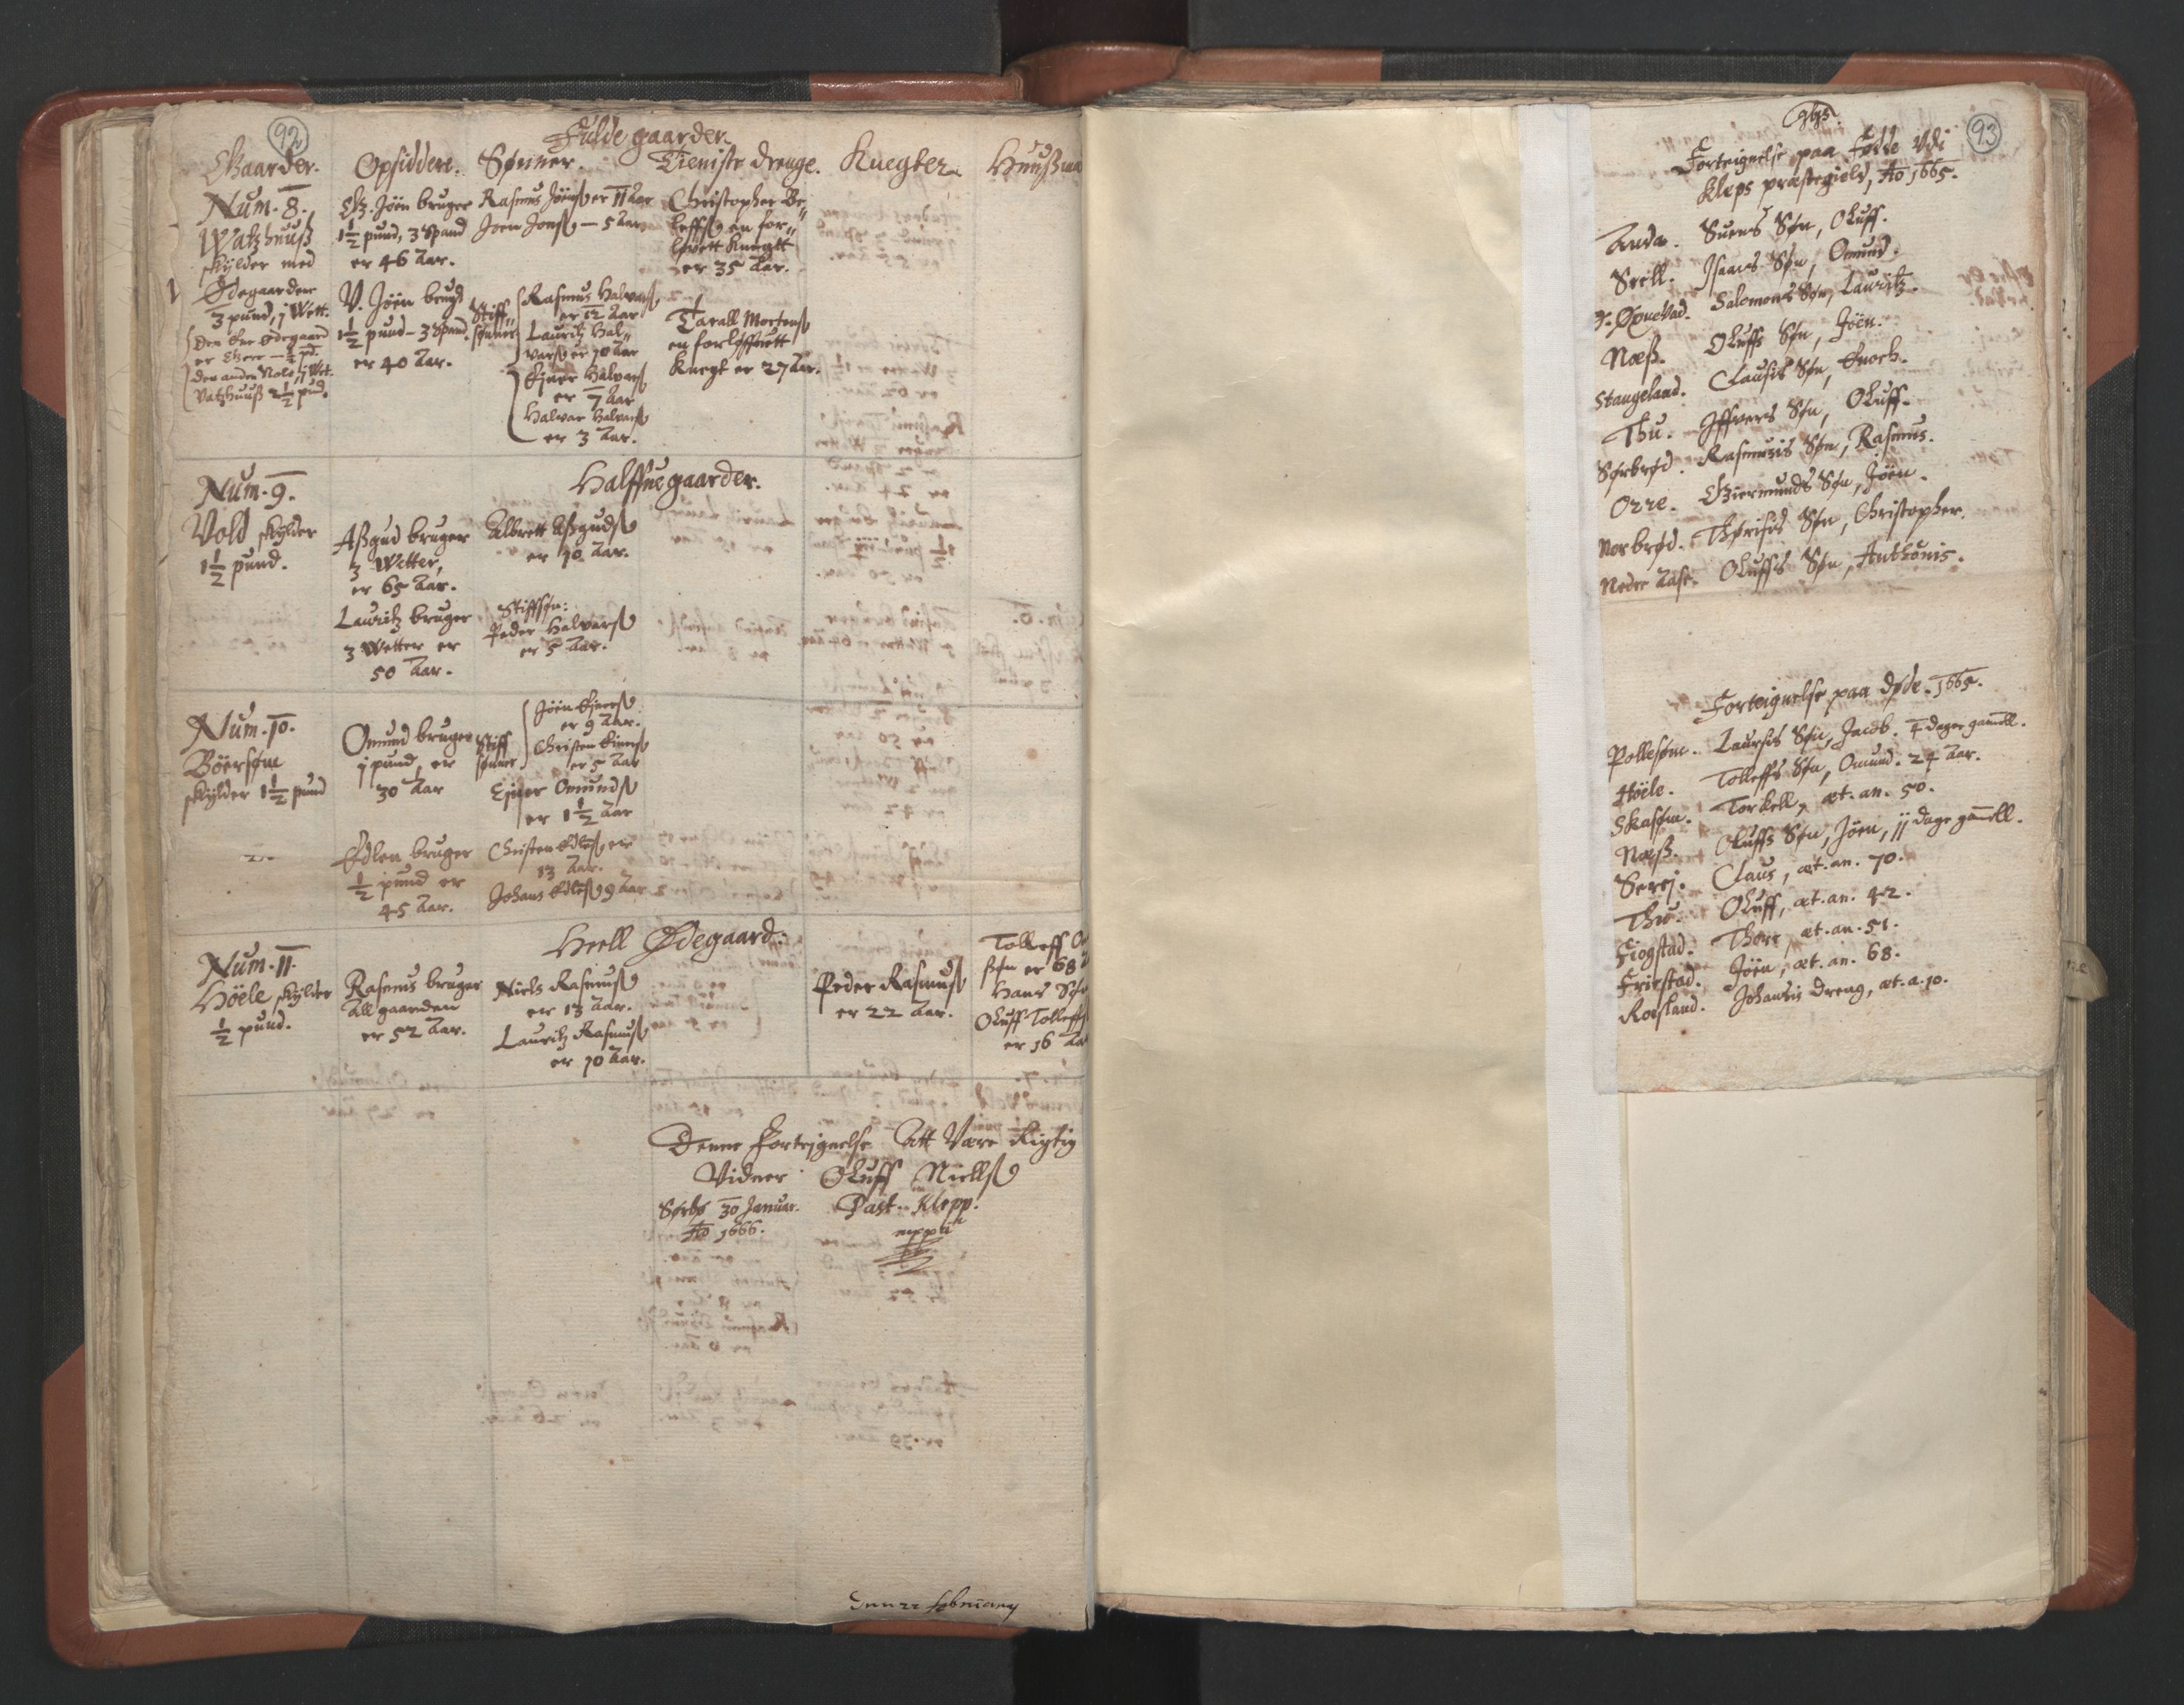 92
Fulde gaarder.
Gaarder. Opsiddere. Sønner. Tieniste drenge. Knegter. Huußmæ
Num. 8.
Watzhuuß
skylder med
Ødegaardene
3 pund, j Wett.
Den Ene Ødegaard
er Gre — ½ pd.
den anden Nole, j Wet.
Vatzhuuß 2½ pund.
Gl. Jöen bruger
1½ pund, 3 Spand
er 46 Aar.
V. Jöen brugr
1½ pund - 3 Spand.
er 40 Aar.
Rasmus Jöenß er 11 Aar
Joen Jonß — 5 Aar
Stiff„
sønner
Rasmus Halvarß
er 12 Aar
Lauritz Hal„
varß er 10 Aar
Ejner Halvarß
er 7 Aar
Halvar Halvarß
er 3 Aar.
Christopher Be„
leffß en for„
lovett Knegtt
er 35 Aar.
Tarall Mortenß
en forløffvett
Knegt er 27 Aar.
Halffue gaarder.
Num. 9.
Vold skylder
1½ pund.
Aßgud bruger
3 Wetter,
er 65 Aar.
Lauritz bruger
3 Wetter er
50 Aar.
Albrett Aßgudß
er 10 Aar.
Stiffsøn:
Peder Halvarß
er 5 Aar.
Num. 10.
Böersøm
skylder 1½ pund
Omund bruger
j pund, er
30 Aar
Stiff
sønner
Jöen Ejnerß
er 9 Aar.
Christen Einerß
er 5 Aar
Ejner Omundß
er 1½ Aar
Edlen bruger
½ pund er
45 Aar.
Christen Edlenß er
13 Aar.
Johans Edlenß 9 Aar
Heell Ødegaard:
Num. 11.
Höele skylder
½ pund.
Rasmus bruger
All gaarden
er 52 Aar.
Niels Rasmusß
er 13 Aar.
Lauritz Rasmusß
er 10 Aar.
Peder Rasmusß
er 22 Aar.
Tolleff O
søn er 68
Hans Søn
Oluff Tolleffs
er 16 Aa
Denne Forteignelse Att Være Rigtig
Vidner Oluff Niellsß
Sørbø 30 Januar. Past. Klepp.
Ao 1666. mppria
Den 22 february
93
Forteignelse paa Fødde Udi
Kleps præstegield, Ao 1665.
Anda. Suens Søn, Oluff.
Seell. Isaacs Søn, Omund.
Y. Øxnevad. Salomons Søn, Lauritz.
Næß. Oluffs Søn, Jöen.
Stangeland. Clausis Søn, Enoch.
Thu. Iffvers Søn, Oluff.
Sørbrød. Rasmusis Søn, Rasmus.
Orre. Giermunds Søn, Jöen.
Norbrød. Thørisis Søn, Christopher.
Nedre Aase. Oluffs Søn, Anthonis.
Forteignelse paa døde. 1665.
Pollesøm. Laursis Søn, Jacob. 4 dager gamell.
Höele. Tolleffs Søn, Omund. 24 Aar.
Skasøm. Torkell, æt. an. 50.
Næß. Oluffs Søn, Jöen, jj dage gamell.
Sevej. Claus, æt. an. 70.
Thu. Oluff, æt. an. 42.
Fiogstad. Thore, æt. an. 51.
Friestad. Jöen, æt. an. 68.
Roesland. Johansis Dreng, æt. a. 10.